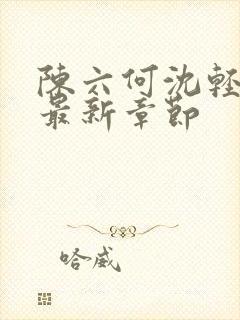 陳六何沈輕
最新章節
哈威